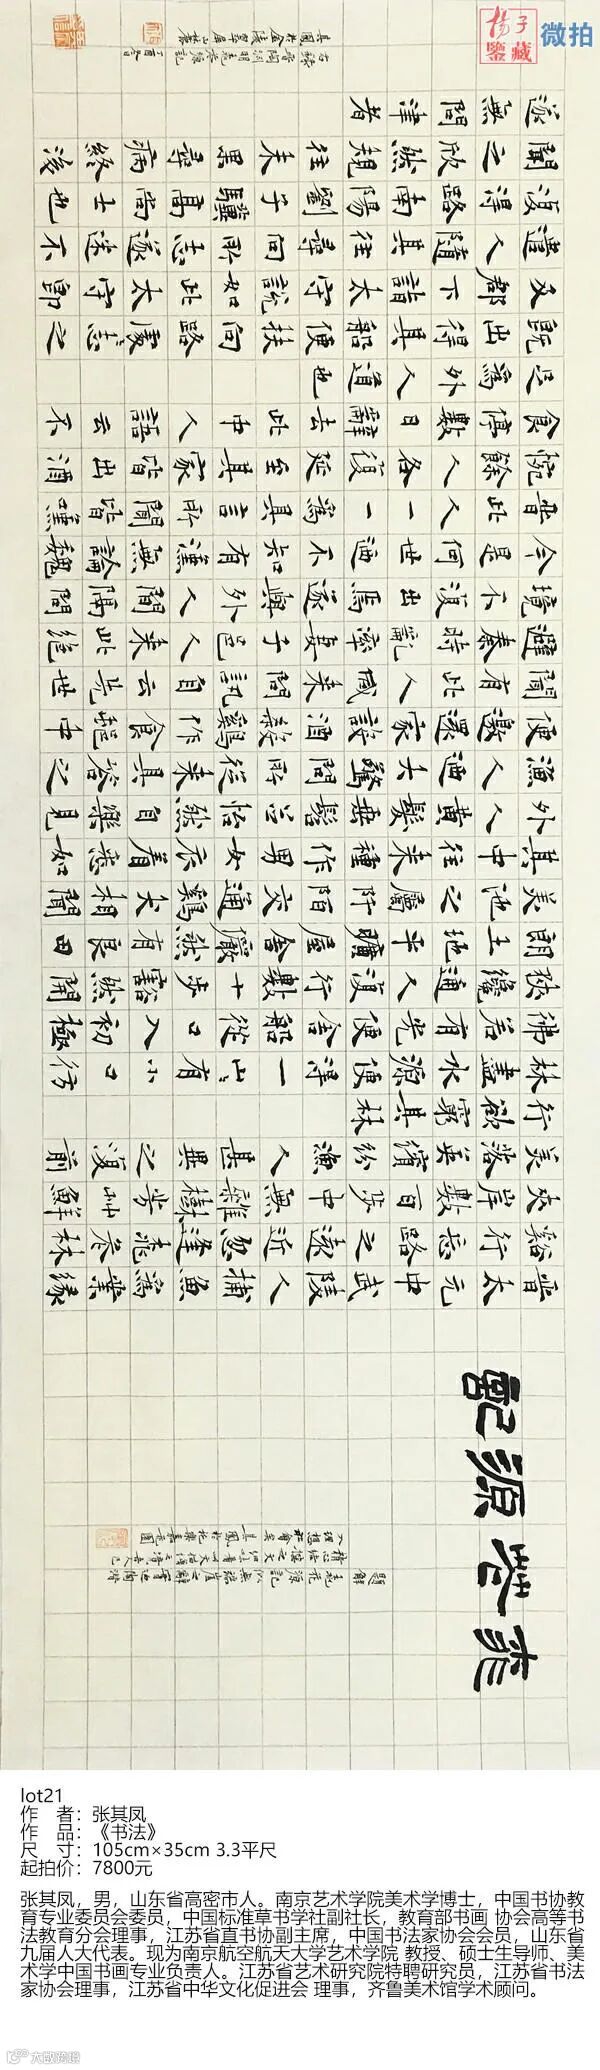 桃花源記
題解
晉太元中武陵人捕魚為業緣
谿行忘路之遠近忽逢桃花林
夾岸數百步中無雜樹芳艸鮮
美落英繽紛漁人甚異之復前
行欲窮其林
林盡水源便得一山〻有小口彷
彿若有光便舍船從口入初極
狹纔通人復行數十步豁然開
朗土地平曠屋舍儼然有良田
美池之屬阡陌交通雞犬相聞
其中往來種作男女衣着悉如
外人黃髮垂髫並怡然自樂見
漁人迺大驚問所從來具答之
便邀還家設酒殺雞作食邨中
聞有此人咸來問訊自云先世
避秦時亂率妻子邑人來此絕
境不復出焉遂與外人間隔問
今是何世迺不知有漢無論魏
晉此人一一為具言所聞皆嘆
惋餘人各復延至其家皆出酒
食停數日辭去此中人語云不
足為外人道也
既出得其船便扶向路處〻志之
及郡下詣太守說如此太守即
遣人隨其往尋向所志遂迷不
復得路南陽劉子驥高尚士也
聞之欣然規往未果尋病終後
遂無問津者
右錄晉陶淵明桃花源記
丁酉冬日
杨子
鉴藏
微拍
lot21
作 者：张其凤
作 品：《书法》
尺 寸：105cm×35cm 3.3平尺
起拍价：7800元
张其凤，男，山东省高密市人。南京艺术学院美术学博士，中国书协教
育专业委员会委员，中国标准草书学社副社长，教育部书画 协会高等书
法教育分会理事，江苏省直书协副主席，中国书法家协会会员，山东省
九届人大代表。现为南京航空航天大学艺术学院 教授、硕士生导师、美
术学中国书画专业负责人。江苏省艺术研究院特聘研究员，江苏省书法
家协会理事，江苏省中华文化促进会 理事，齐鲁美术馆学术顾问。
大数跨境